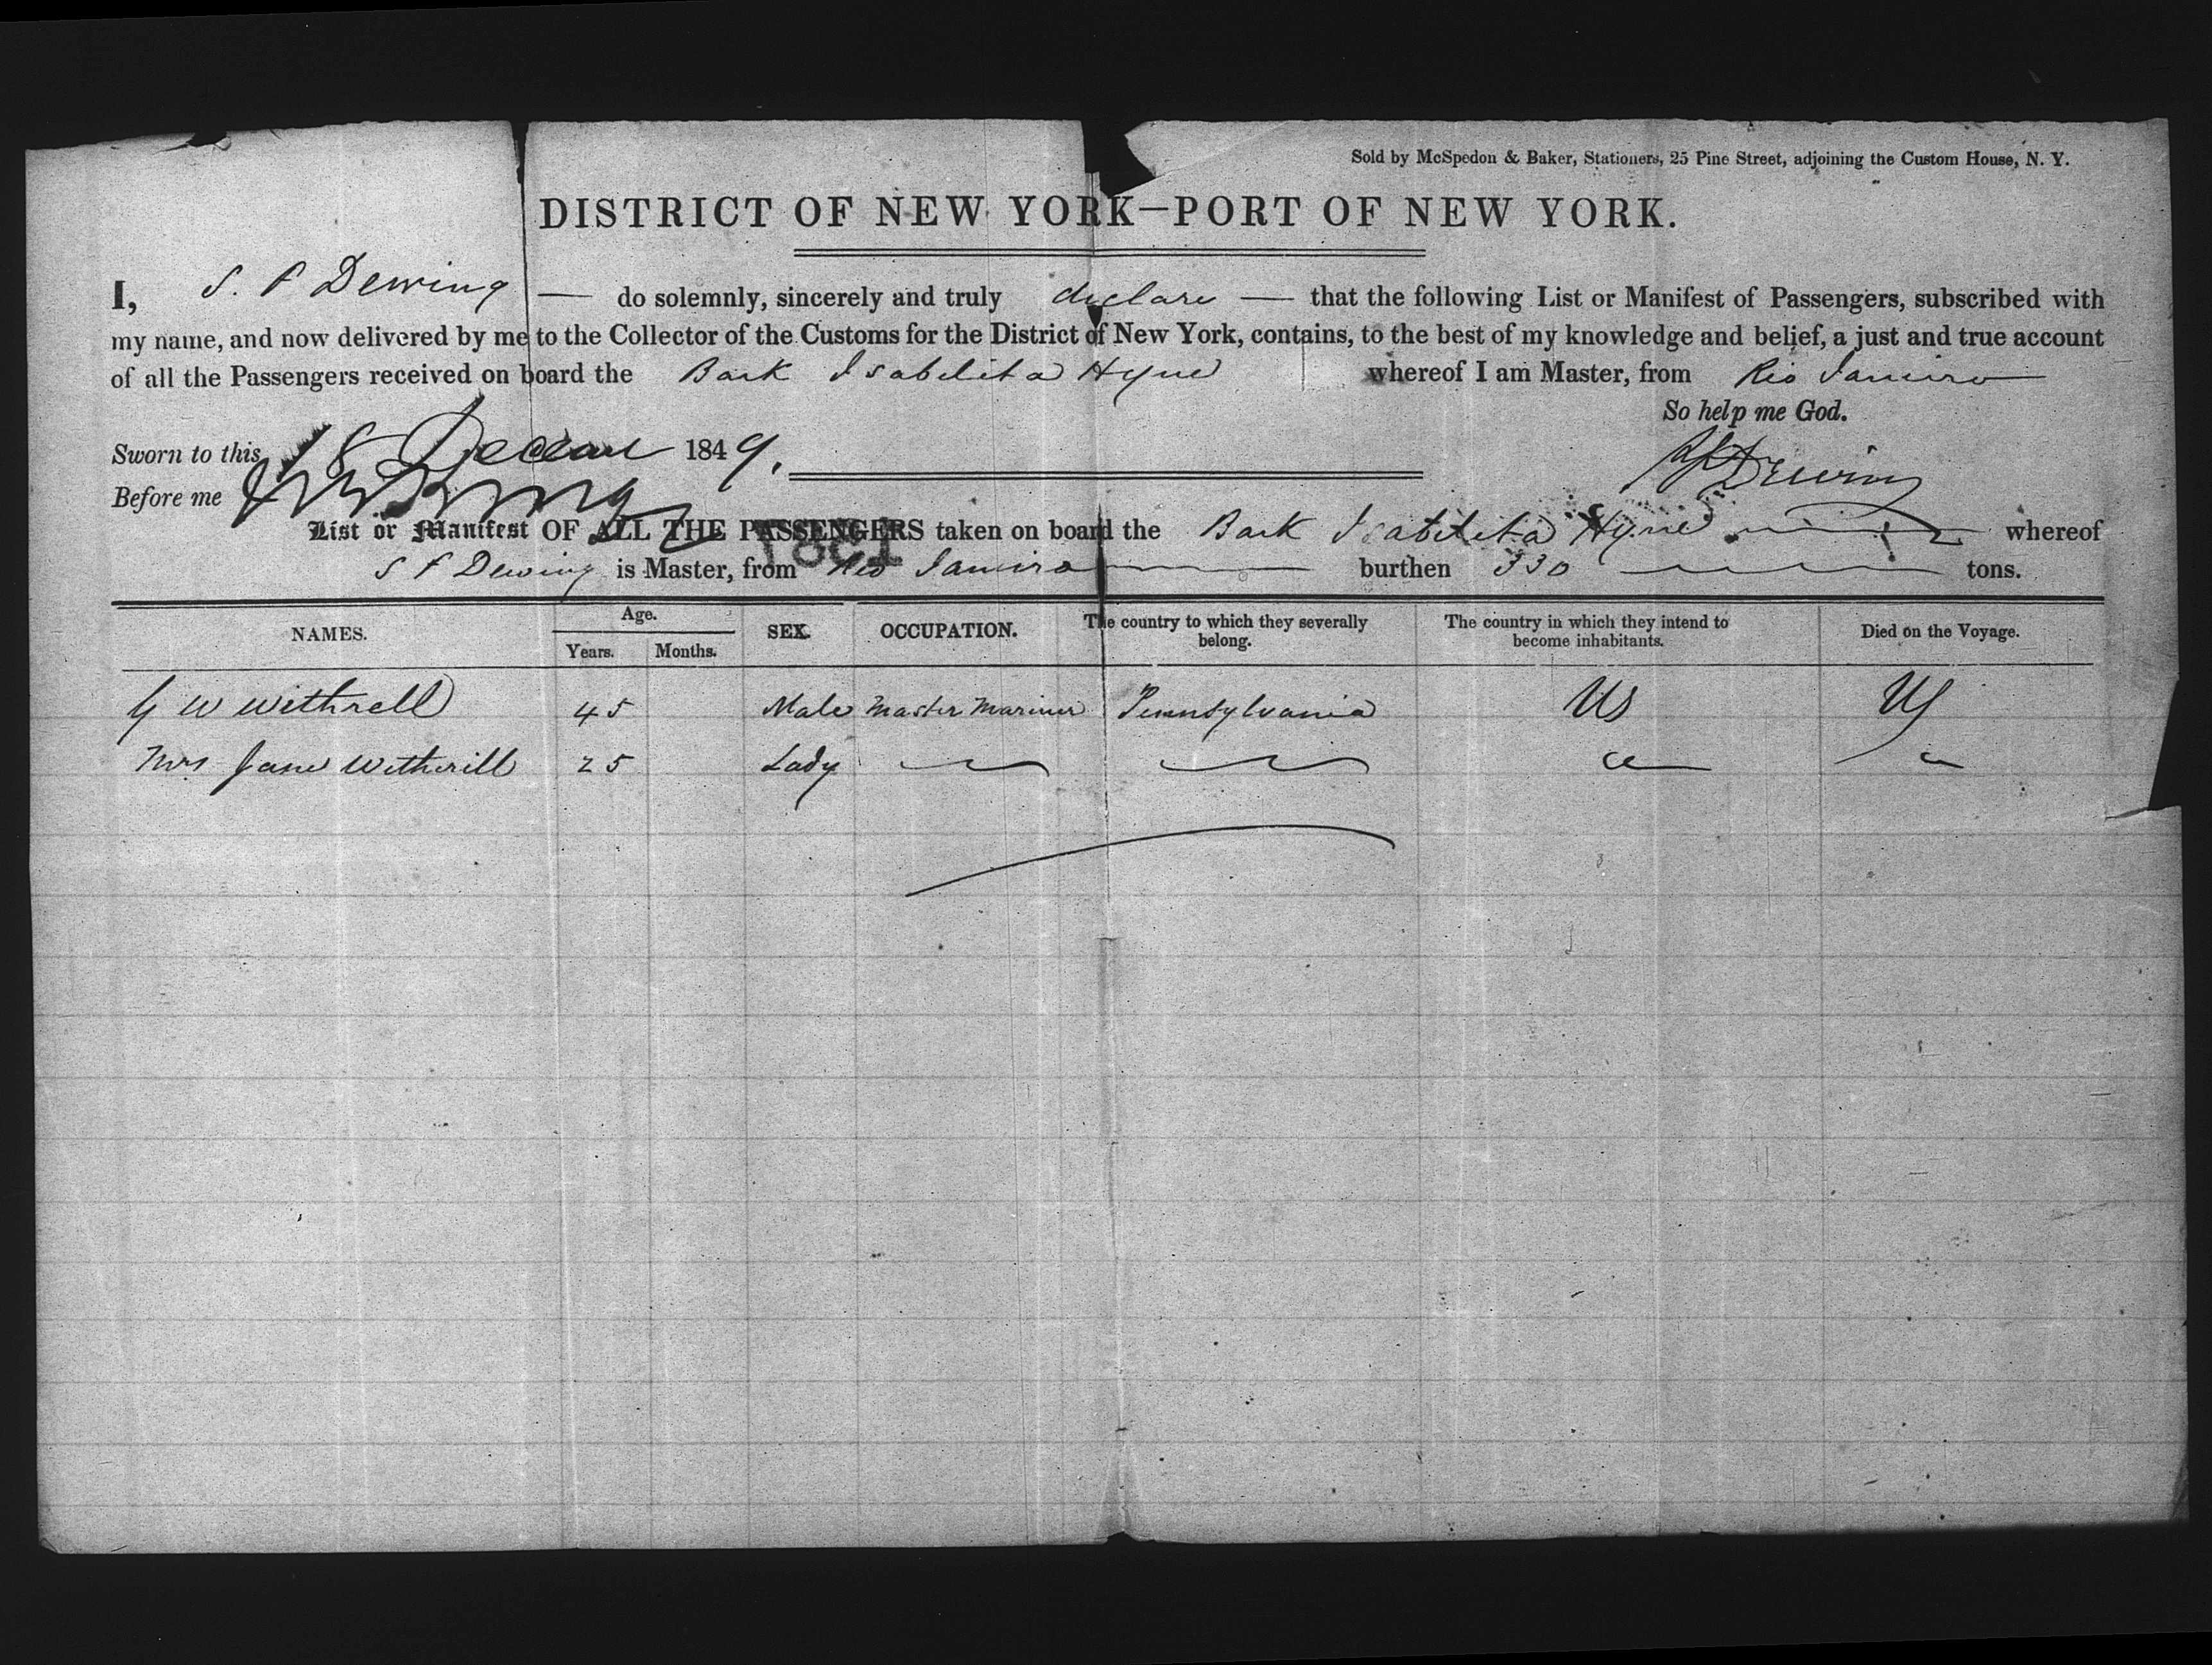 Sold by McSpedon & Baker, Stationers, 25 Pine Street, adjoining the Custom House, N. Y.
DISTRICT OF NEW YORK—PORT OF NEW YORK.
I, S. P Dewing — do solemnly, sincerely and truly declare — that the following List or Manifest of Passengers, subscribed with
my name, and now delivered by me to the Collector of the Customs for the District of New York, contains, to the best of my knowledge and belief, a just and true account
of all the Passengers received on board the Bark Isabelita Hyne whereof I am Master, from Rio Janeiro
So help me God.
Sworn to this 18 1849.
Before me
Dewing
List or Manifest OF ALL THE PASSENGERS taken on board the Bark Isabelita Hyne whereof
Dewing is Master, from Rio Janeiro burthen 330 tons.
NAMES. Age. Years. Months. SEX. OCCUPATION. The country to which they severally belong. The country in which they intend to become inhabitants. Died on the Voyage.
G W Withrell 45 Male Master Mariner Pennsylvania US US
Mrs Jane Witherill 25 Lady